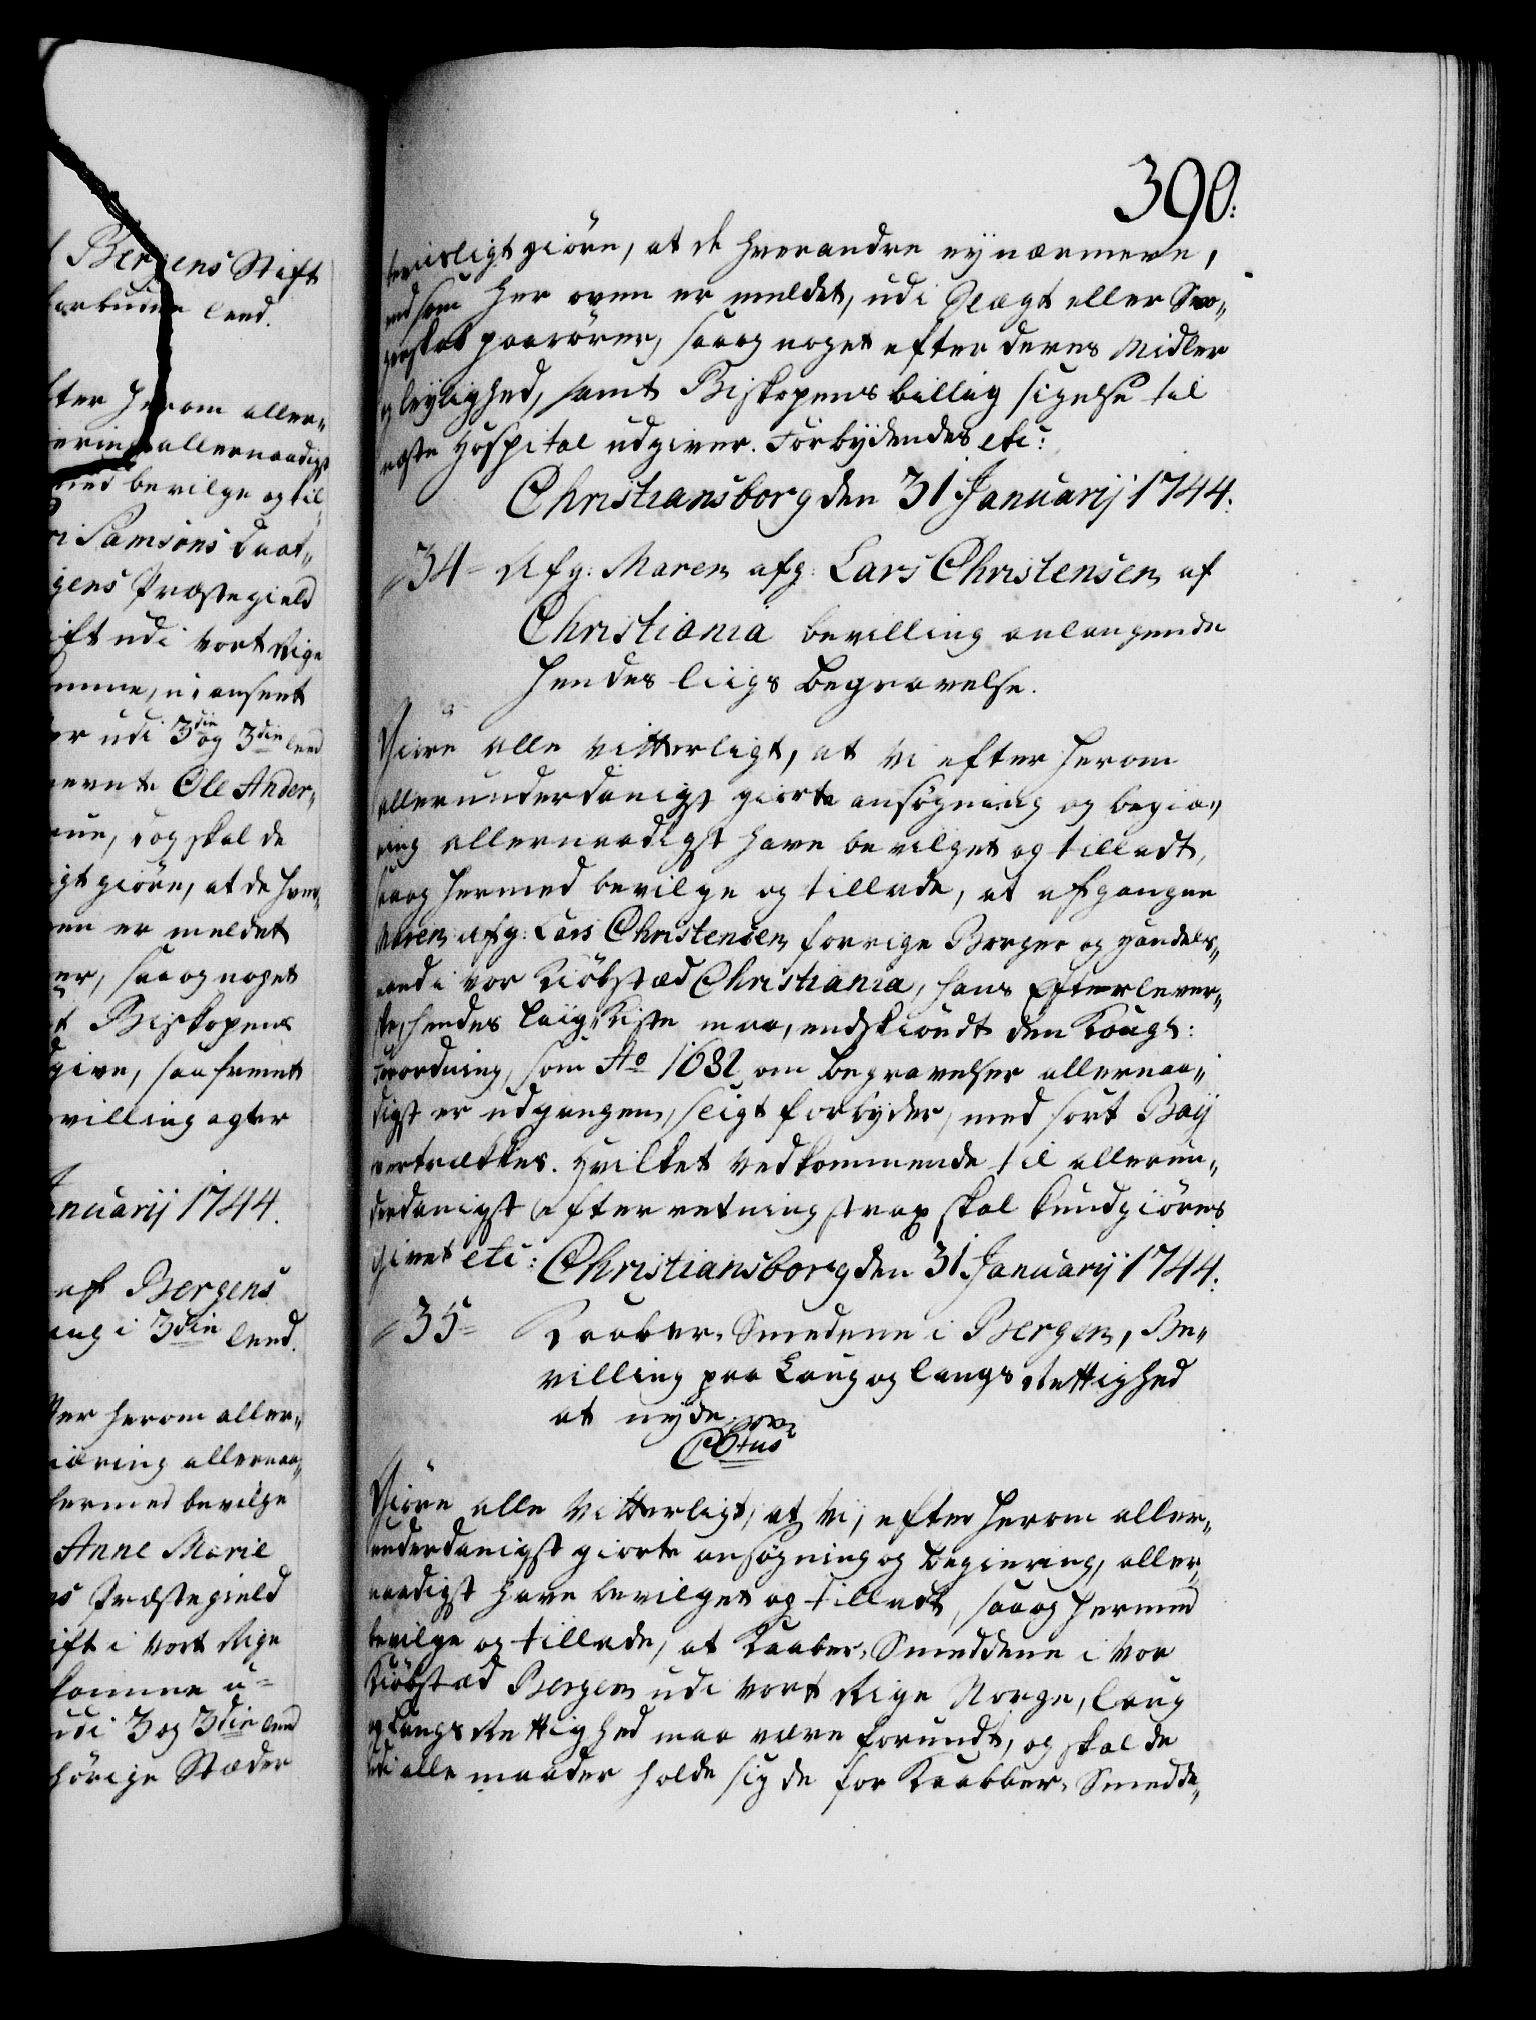 Bergens Stift
forbudne leed.
efter herom aller„
allernaadigst
bevilge og til
Samsøns Daat„
gens Præstegield
ift udi vort Rige
komme, u¡anseet
er udi 3die og 3die leed
nevnte Ole Ander„
dog skal de
igt giöre, at de hver„
oven er meldet
saa og noget
Biskopens
give, saafremt
villing agter
Januarij 1744.
af Bergens
i 3die leed.
efter herom aller„
giæring allernaa„
hermed bevilge
Anne Marie
Præstegield
ift i vort Rige
komme u=
udi 3 og 3die leed
hörige Stæder
390.
beviisligt giöre, at de hverandre ey nærmere,
end som her oven er meldet, udi Slægt eller Svo„
gerskab paarörer, saa og noget efter deres Midler
og leylighed, samt Biskopens billig sigelse til
næste Hospital udgiver. Forbydendes etc:
Christiansborg den 31 Januarij 1744.
34 Afg: Maren afg: Lars Christensen af
Christiania bevilling anlangende
hendes liigs begravelse.
Giöre alle vitterligt, at Vi efter herom
allerunderdanigst giorte ansögning og begiæ„
ring allernaadigst have bevilget og tilladt,
saa og hermed bevilge og tillade, at afgangne
Maren afg: Lars Christensen forrige Borger og Handels„
mand i vor Kiöbstæd Christiania, hans Efterlever„
ske, hendes Liig-Kiste maa, endskiöndt den Kongl:
Forordning, som Ao 1682 om begravelser allernaa„
digst er udgangen, sligt forbyder, med sort Baij
overtrækkes. Hvilket Vedkommende til allerun„
derdanigst efterretning strax skal kundgiöres
givet etc: Christiansborg den 31 Januarij 1744.
35 Kaaber-Smedene i Bergen, Be„
villing paa Laug og laugs Rettighed
at nyde.
Giöre alle Vitterligt, at Vi, efter herom aller„
underdanigst giorte ansögning og begiering, aller„
naadigst have bevilget og tilladt, saa og hermed
bevilge og tillade, at Kaaber-Smeddene i vor
Kiöbstæd Bergen udi vort Rige Norge, laug
og Laugs Rettighed maa være forundt, og skal de
udi alle maader holde sig de for Kaabber-Smedde„